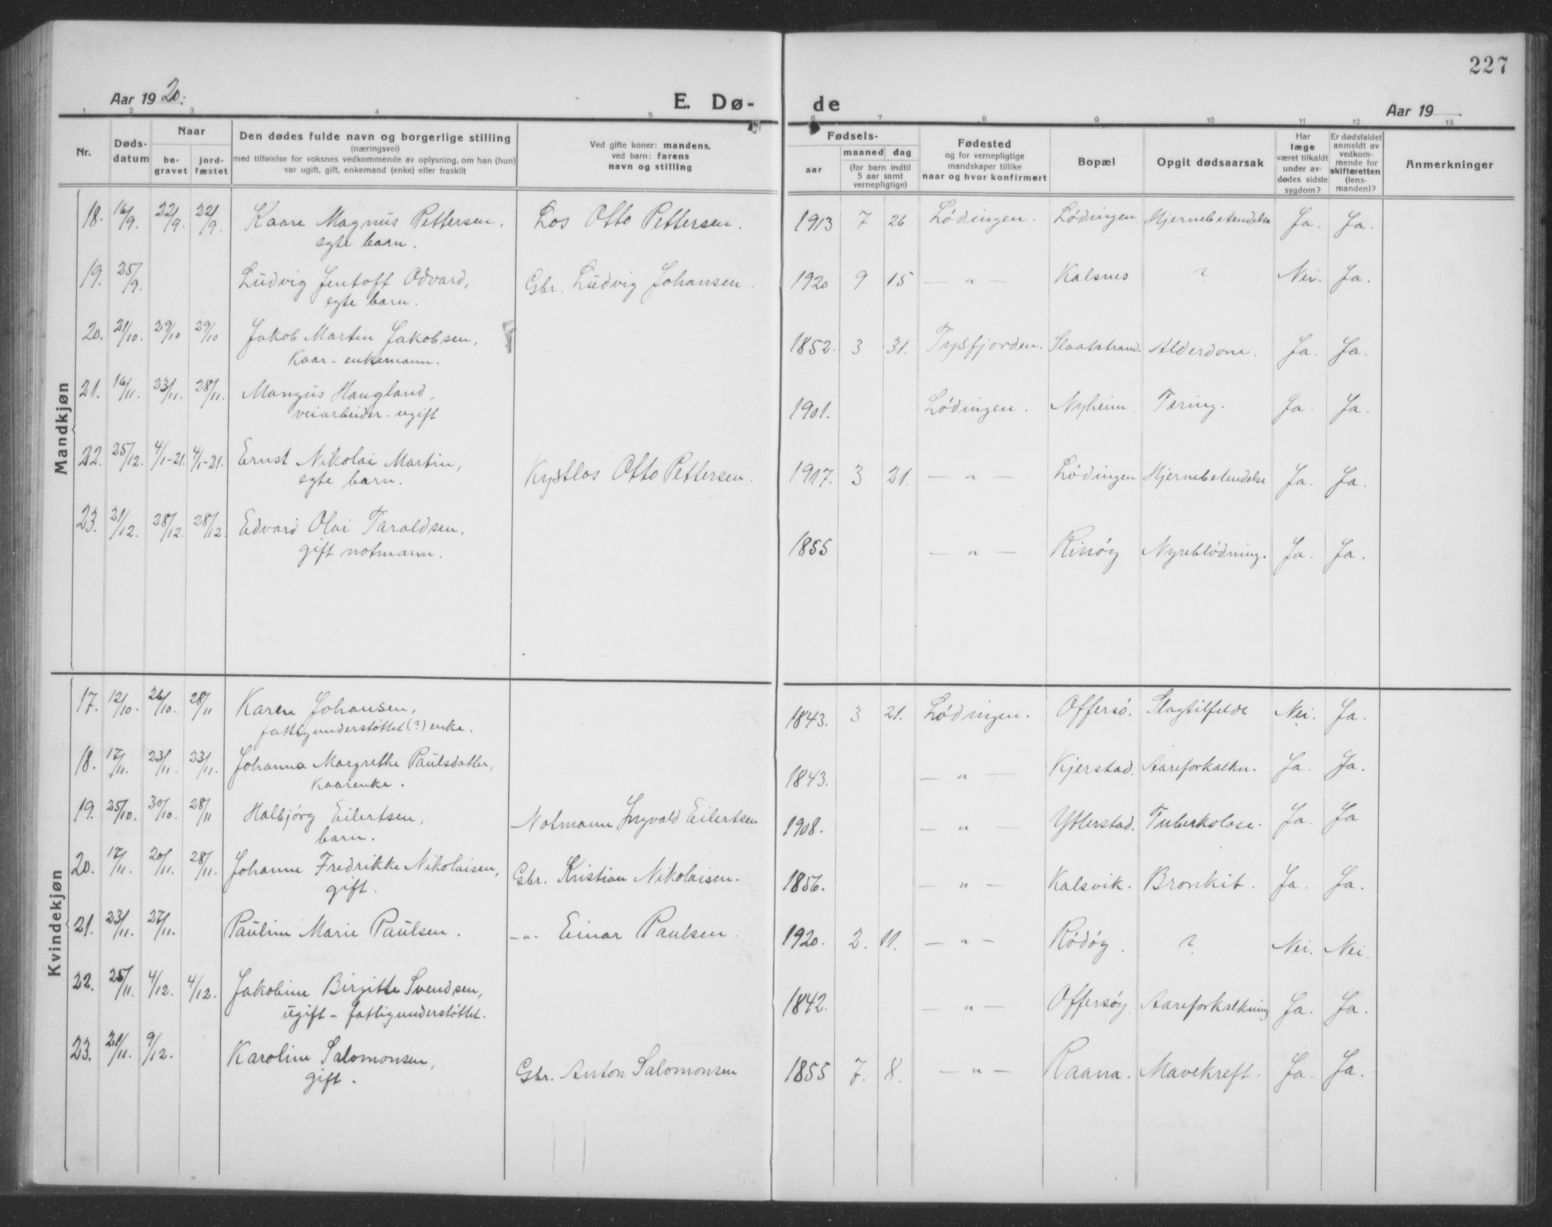 227
Aar 1920.
E. Dø-
de
Aar 19
1 2 3 4 5 6 7 8 9 10 11 12 13
Nr.
Døds-
datum
Naar
be-
gravet
jord-
fæstet
Den dødes fulde navn og borgerlige stilling
(næringsvei)
med tilføielse for voksnes vedkommende av oplysning, om han (hun)
var ugift, gift, enkemand (enke) eller fraskilt
Ved gifte koner: mandens,
ved barn: farens
navn og stilling
Fødsels-
aar
maaned
dag
(for barn indtil
5 aar samt
vernepligtige)
Fødested
og for vernepligtige
mandskaper tillike
naar og hvor konfirmert
Bopæl
Opgit dødsaarsak
Har
læge
været tilkaldt
under av-
dødes sidste
sygdom?
Er dødsfaldet
anmeldt av
vedkom-
mende for
skifteretten
(lens-
manden)?
Anmerkninger
Mandkjøn
18. 16/9. 22/9. 22/9. Kaare Magnus Pettersen, Los Otto Pettersen. 1913 7 26 Lødingen. Lødingen Hjernebetendelse Ja. Ja.
egte barn.
19. 25/9. Ludvig Jentoff Edvard, Gbr. Ludvig Johansen. 1920 9 15 — " — Kalsnes ? Nei. Ja.
egte barn.
20. 21/10. 29/10 29/10 Jakob Martin Jakobsen, 1852. 3 31. Tysfjorden. Slaatstrand. Alderdom. Ja. Ja.
Kaar-enkemann.
21. 16/11. 23/11. 28/11. Mangus Haugland, 1901. Lødingen. Nyheim Tæring. Ja. Ja.
veiarbeider - ugift
22. 25/12. 4/1-21. 4/1-21. Ernst Nikolai Martin, Kystlos Otto Pettersen. 1917. 3 21. — " — Lødingen Hjernebetendelse Ja. Ja.
egte barn.
23. 21/12. 28/12. 28/12 Edvard Olai Taraldsen, 1855 — " — Rinøy Nyreblødning. Ja. Ja.
gift notmann.
Kvindekjøn
17. 12/10. 26/10. 28/11 Karen Johansen, 1843. 3 21. Lødingen. Offersø. Slagtilfelde Nei. Ja.
fattigunderstøttet (?) enke.
18. 17/11. 23/11. 23/11. Johanna Margrethe Paulsdatter, 1843. — " — Kjerstad. Aareforkalkn. Ja. Ja.
Kaarenke.
19. 25/10. 30/10. 28/11 Halbjørg Eilertsen, Notmann Ingvald Eilertsen 1908. — " — Ytterstad. Tuberkolose. Ja. Ja
barn.
20. 17/11. 20/11. 28/11. Johanne Fredrikke Nikolaisen, Gbr. Kristian Nikolaisen. 1856. — " — Kalsvik. Bronkit. Ja. Ja.
gift.
21. 23/11. 27/11. Pauline Marie Paulsen. — " — Einar Paulsen. 1920. 2. 11. — " — Rødøy. ? Nei. Nei.
22. 25/11. 4/12. 4/12. Jakobine Birgitte Svendsen, 1842. — " — Offersøy Aareforkalkning Ja. Ja.
ugift - fattigunderstøttet.
23. 21/11. 9/12. Karoline Salomonsen, Gbr. Anton Salomonsen 1855 7. 8. — " — Raana. Mavekreft. Ja. Ja.
gift.